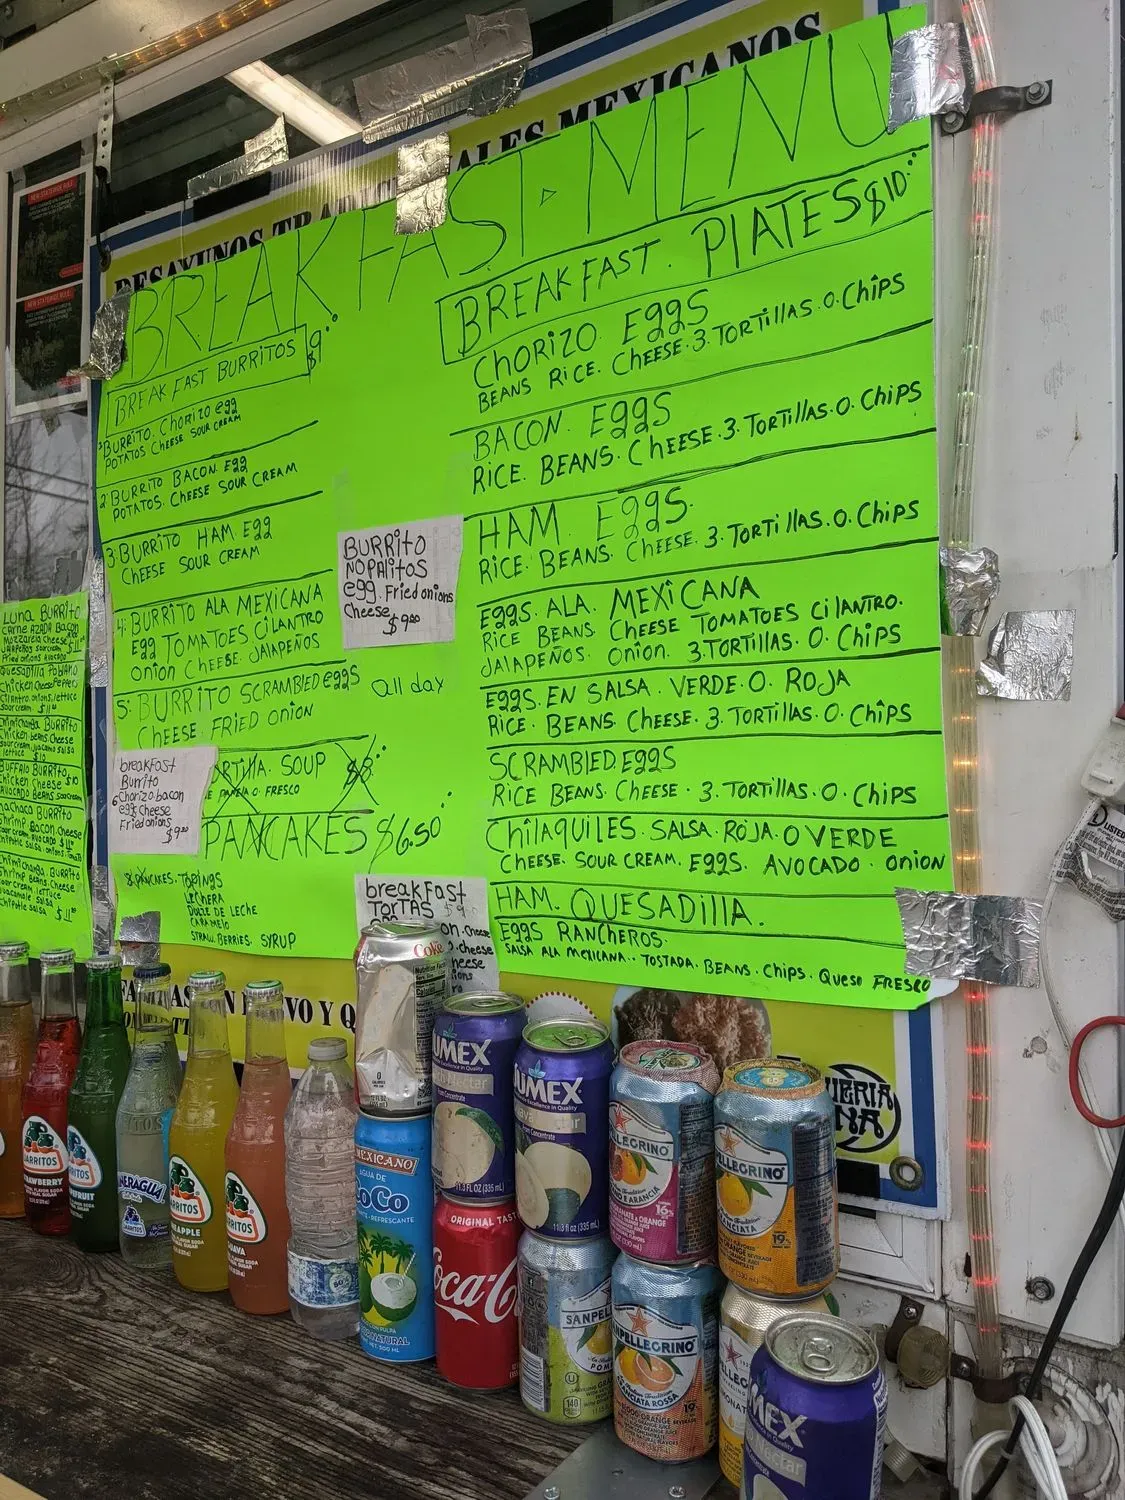 DESAYUNOS
ALES MEXICANOS
BREAKFAST. MENU
BREAKFAST BURRITOS $9
1 BURRITO. CHORIZO egg
POTATOS CHEESE SOUR CREAM
2 BURRITO BACON. Egg
POTATOS. CHEESE SOUR CREAM
3 BURRITO HAM Egg
CHEESE SOUR CREAM
4: BURRITO ALA MEXICANA
Egg TOMATOES CILANTRO
ONION CHEESE. JALAPEÑOS
5: BURRITO SCRAMBLED eggS
CHEESE. FRIED ONION
All day
BURRITO
NOPALITOS
egg. Fried onions
Cheese $9.00
breakfast
Burrito
6 Chorizo bacon
egg cheese
Fried onions
$9.00
ORTILLA. SOUP $8
O. FRESCO
PANCAKES $6.50
PANCAKES. TOPINGS
LECHERA
DULZE DE LECHE
CARAMELO
STRAWBERRIES. SYRUP
breakFast
TorTAS
BREAKFAST. PLATES $10
CHORIZO EggS
BEANS RICE. CHEESE. 3. TORTILLAS. O. CHIPS
BACON. EggS
RICE. BEANS. CHEESE. 3. TORTILLAS. O. CHIPS
HAM. EggS.
RICE. BEANS. CHEESE. 3. TORTILLAS. O. CHIPS
EggS. ALA. MEXICANA
RICE BEANS CHEESE TOMATOES CILANTRO.
JALAPEÑOS. ONION. 3. TORTILLAS. O. CHIPS
EGGS. EN SALSA. VERDE. O. ROJA
RICE. BEANS CHEESE. 3. TORTILLAS. O. CHIPS
SCRAMBLED. EggS
RICE BEANS CHEESE. 3. TORTILLAS. O. CHIPS
CHILAQUILES. SALSA. ROJA. O VERDE
CHEESE. SOUR CREAM. EGGS. AVOCADO. ONION
HAM. QUESADILLA.
EGGS RANCHEROS.
SALSA ALA MEXICANA.. TOSTADA. BEANS. CHIPS. QUESO FRESCO
LUNA BURRITO
CARNE AZADA Bacon
Mozzarella Cheese
Fried onions Avocado
Quesadilla Poblano
Chicken Cheese Peppers
Cilantro. onions. lettuce
sour cream
Chimichanga BURRITO
Chicken beans. Cheese
lettuce $10
BUFFALO BURRITO $10
Chicken Cheese
Avocado beans sour cream
BURRITO
Shrimp Bacon. Cheese
Chimichanga. BURRITO
Shrimp Beans. Cheese
sour cream. lettuce
Guacamole Salsa
Chipotle salsa $11
NEW STATEWIDE RULE
NEW STATEWIDE RULE
VO Y Q
Coke
JARRITOS
STRAWBERRY
JARRITOS
MINERAGUA
JARRITOS
PINEAPPLE
JARRITOS
GUAVA
MEXICANO
AGUA DE
COCO
REFRESCANTE
NATURAL
ORIGINAL TASTE
Coca-Cola
JUMEX
Nectar
11.3 FL OZ (335 mL)
JUMEX
11.3 fl oz (335 mL)
PELLEGRINO
16%
PELLEGRINO
ARANCIATA
19%
SANPELL
POMP
140
PELLEGRINO
ARANCIATA ROSSA
19%
JUMEX
Nectar
LISTED